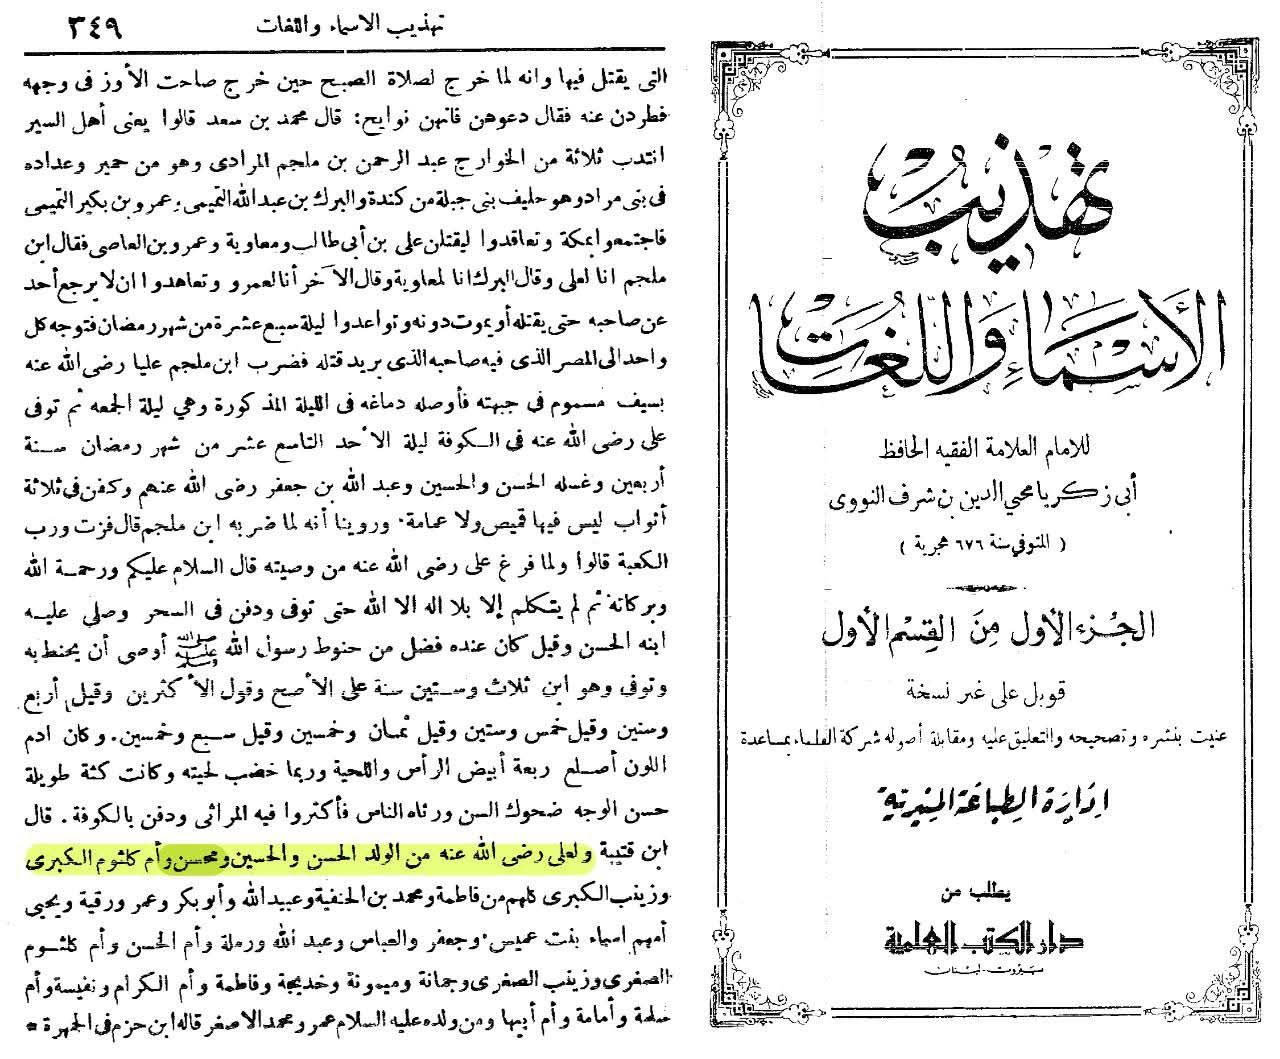 تهذيب الاسماء واللغات ٣٤٩
التى يقتل فيها وانه لما خرج لصلاة الصبح حين خرج صاحت الأوز فى وجهه
فطردن عنه فقال دعوهن فانهن نوايح: قال محمد بن سعد قالوا يعنى أهل السير
انتدب ثلاثة من الخوارج عبد الرحمن بن ملجم المرادى وهو من حمير وعداده
فى بنى مراد وهو حليف بنى جبلة من كندة والبرك بن عبد الله التميمى وعمرو بن بكير التميمى
فاجتمعوا بمكة وتعاقدوا ليقتلن على بن أبى طالب ومعاوية وعمرو بن العاصى فقال ابن
ملجم انا لعلى وقال البرك انا لمعاوية وقال الآخر أنا لعمرو وتعاهدوا ان لا يرجع أحد
عن صاحبه حتى يقتله أو يموت دونه وتواعدوا ليلة سبع عشرة من شهر رمضان فتوجه كل
واحد الى المصر الذى فيه صاحبه الذى يريد قتله فضرب ابن ملجم عليا رضى الله عنه
بسيف مسموم فى جبهته فأوصله دماغه فى الليلة المذكورة وهي ليلة الجمعه ثم توفى
على رضى الله عنه فى الكوفة ليلة الأحد التاسع عشر من شهر رمضان سنة
أربعين وغسله الحسن والحسين وعبد الله بن جعفر رضى الله عنهم وكفن فى ثلاثة
أثواب ليس فيها قميص ولا عمامة. وروينا أنه لما ضربه ابن ملجم قال فزت ورب
الكعبة قالوا ولما فرغ على رضى الله عنه من وصيته قال السلام عليكم ورحمة الله
وبركاته ثم لم يتكلم إلا بلا اله الا الله حتى توفى ودفن فى السحر وصلى عليه
ابنه الحسن وقيل كان عنده فضل من حنوط رسول الله ﷺ أوصى أن يحنط به
وتوفى وهو ابن ثلاث وستين سنة على الأصح وقول الأكثرين وقيل أربع
وستين وقيل خمس وستين وقيل ثمان وخمسين وقيل سبع وخمسين. وكان ادم
اللون أصلع ربعة أبيض الرأس واللحية وربما خضب لحيته وكانت كثة طويلة
حسن الوجه ضحوك السن ورثاه الناس فأكثروا فيه المراثى ودفن بالكوفة. قال
ابن قتيبة ولعلى رضى الله عنه من الولد الحسن والحسين ومحسن وأم كلثوم الكبرى
وزينب الكبرى كلهم من فاطمة ومحمد بن الحنفية وعبيد الله وأبو بكر وعمر ورقية ويحيى
أمهم اسماء بنت عميس. وجعفر والعباس وعبد الله ورملة وأم الحسن وأم كلثوم
الصغرى وزينب الصغرى وجمانة وميمونة وخديجة وفاطمة وأم الكرام ونفيسة وأم
سلمة وأمامة وأم أبيها ومن ولده عليه السلام عمر ومحمد الاصغر قاله ابن حزم فى الجمهرة *
تهذيب
الأسماء واللغات
للامام العلامة الفقيه الحافظ
أبى زكريا محيي الدين بن شرف النووى
( المتوفى سنة ٦٧٦ هجرية )
الجزء الأول من القسم الأول
قوبل على غير نسخة
عنيت بنشره وتصحيحه والتعليق عليه ومقابلة أصوله شركة العلماء بمساعدة
إدارة الطباعة المنيرية
يطلب من
دار الكتب العلمية
بيروت - لبنان